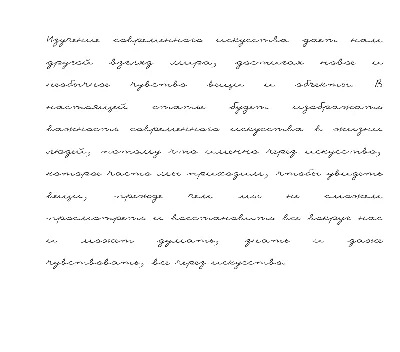 Изучение современного искусства дает нам
другой взгляд мира, достигая новое и
необычное чувство вещи и объекты. В
настоящей статье будет изображать
важность современного искусства в жизни
людей, потому что именно через искусство,
которое часто мы приходим, чтобы увидеть
вещи, прежде чем мы не сможем
просмотреть и восстановить все вокруг нас
и может думать, знать и даже
чувствовать, все через искусства.